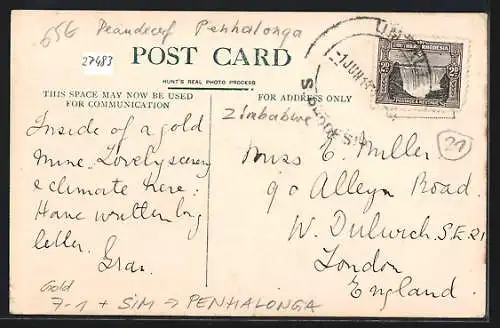 65G Penhalonga
27483
POST CARD
HUNT'S REAL PHOTO PROCESS
THIS SPACE MAY NOW BE USED
FOR COMMUNICATION
FOR ADDRESS ONLY
UMTALI
1 JUN
S. RHODESIA
SOUTHERN RHODESIA
2D
2D
POSTAGE & REVENUE
Zimbabwe
21
Inside of a gold
mine. Lovely scenery
& climate here.
Have written big
letter.
Gran.
Miss E. Miller
90 Alleyn Road.
W. Dulwich. S.E. 21
London
England.
Gold
7-1 + SIM → PENHALONGA